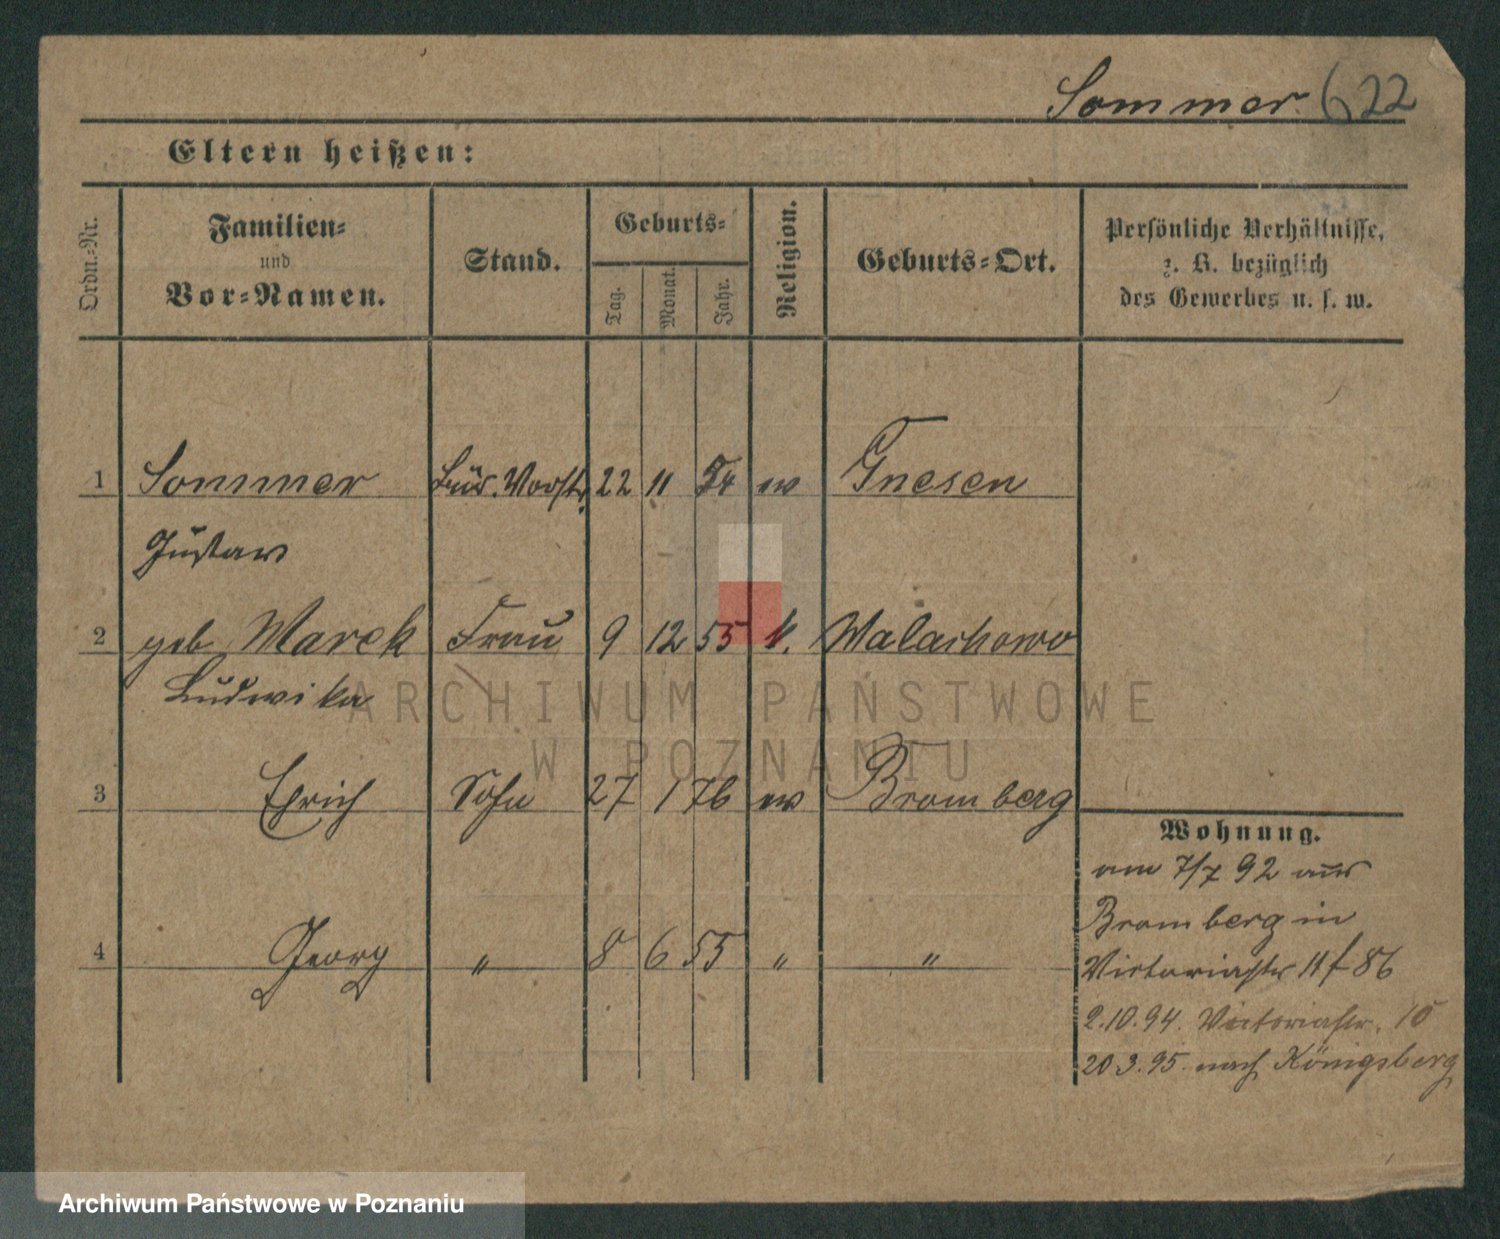 Sommer. 622
Eltern heißen:
Ordn.-Nr.
Familien- und Vor-Namen.
Stand.
Geburts-
Tag. Monat. Jahr.
Religion.
Geburts-Ort.
Persönliche Verhältnisse, z. B. bezüglich des Gewerbes u. s. w.
1 Sommer Bür. Vorst. 22 11 54 ev Gnesen
Gustav
2 geb Marek Frau 9 12 55 k. Walachowo
Ludwika
3 Erich Sohn 27 1 76 ev Bromberg
4 Georg " 8 6 " "
Wohnung.
am 7/7 92 aus
Bromberg in
Victoriastr 86
2.10.94. Victoriastr. 10
20.3.95. nach Königsberg
ARCHIWUM PAŃSTWOWE
W POZNANIU
Archiwum Państwowe w Poznaniu